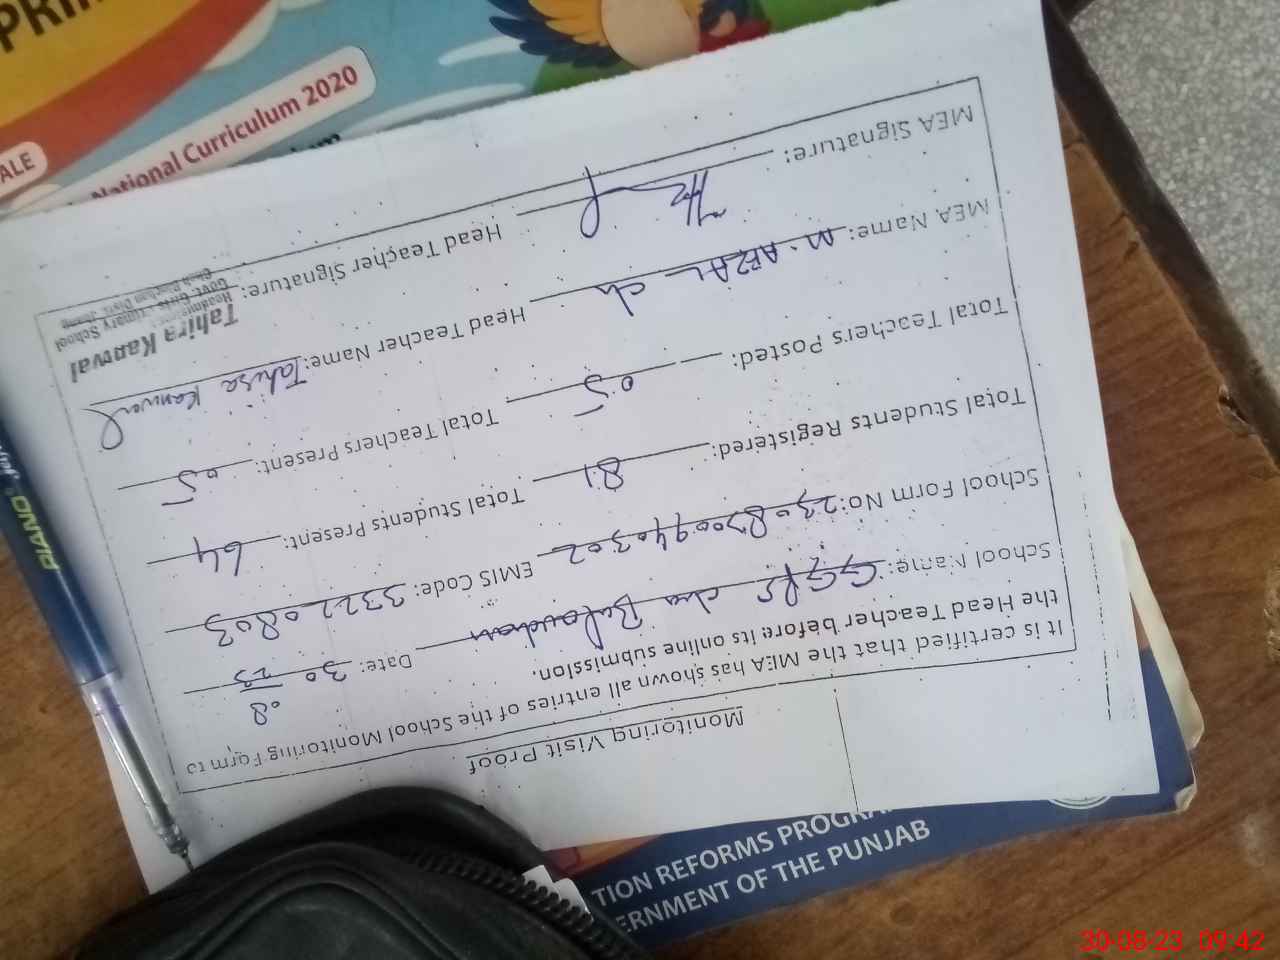 PRI
National Curriculum 2020
ALE
Monitoring Visit Proof
It is certified that the MEA has shown all entries of the School Monitoring Form to
the Head Teacher before its online submission.
School Name: GGPS Balouchan Date: 30 08 23
School Form No: EMIS Code: 33220803
Total Students Registered: 81 Total Students Present: 64
Total Teachers Posted: 05 Total Teachers Present: 05
MEA Name: M. AFZAL ch Head Teacher Name: Tahira Kanwal
MEA Signature: Head Teacher Signature:
Tahira Kanwal
Govt. Girls Primary School
PIANO
TION REFORMS PROGRA
ERNMENT OF THE PUNJAB
30-08-23 09:42